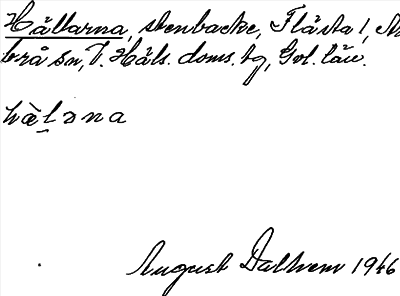 Hällarna, stenbacke, Flästa 1, Ar
brå sn, V. Häls. doms. tg, Gvl. län.
hàḷəna
August Dalhem 1946